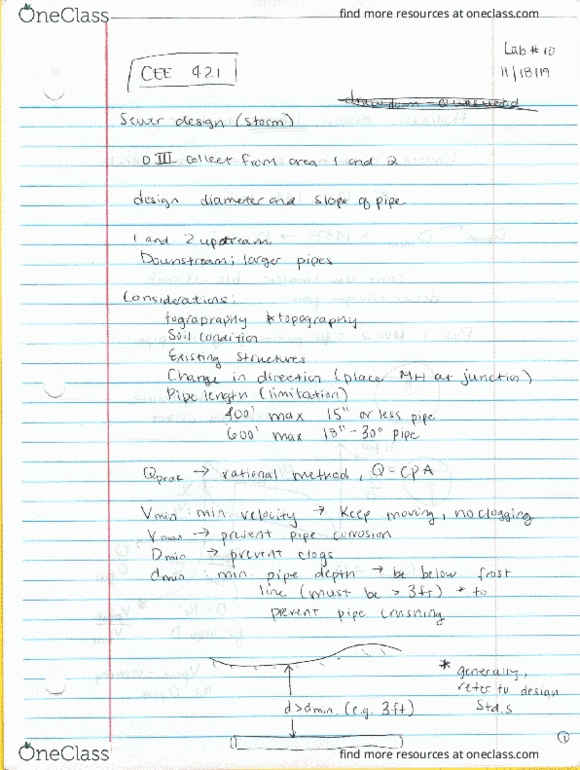 OneClass
find more resources at oneclass.com
Lab # 10
CEE 421
11/18/19
Sewer design (storm)
0 III collect from area 1 and 2
design diameter and slope of pipe
1 and 2 upstream
Downstream: larger pipes
Considerations:
tograpraphy *topography
Soil condition
Existing structures
Change in direction (place MH at junction)
Pipe length (limitation)
400' max 15" or less pipe
600' max 18" - 30" pipe
Qpeak → rational method, Q=CPA
Vmin: min velocity → keep moving, no clogging
Vmax → prevent pipe corrosion
Dmin → prevent clogs
dmin: min pipe depth → be below frost
line (must be > 3ft) * to
prevent pipe crushing
* generally,
refer to design
Std.s
d>dmin. (e.g. 3ft)
1
OneClass
find more resources at oneclass.com